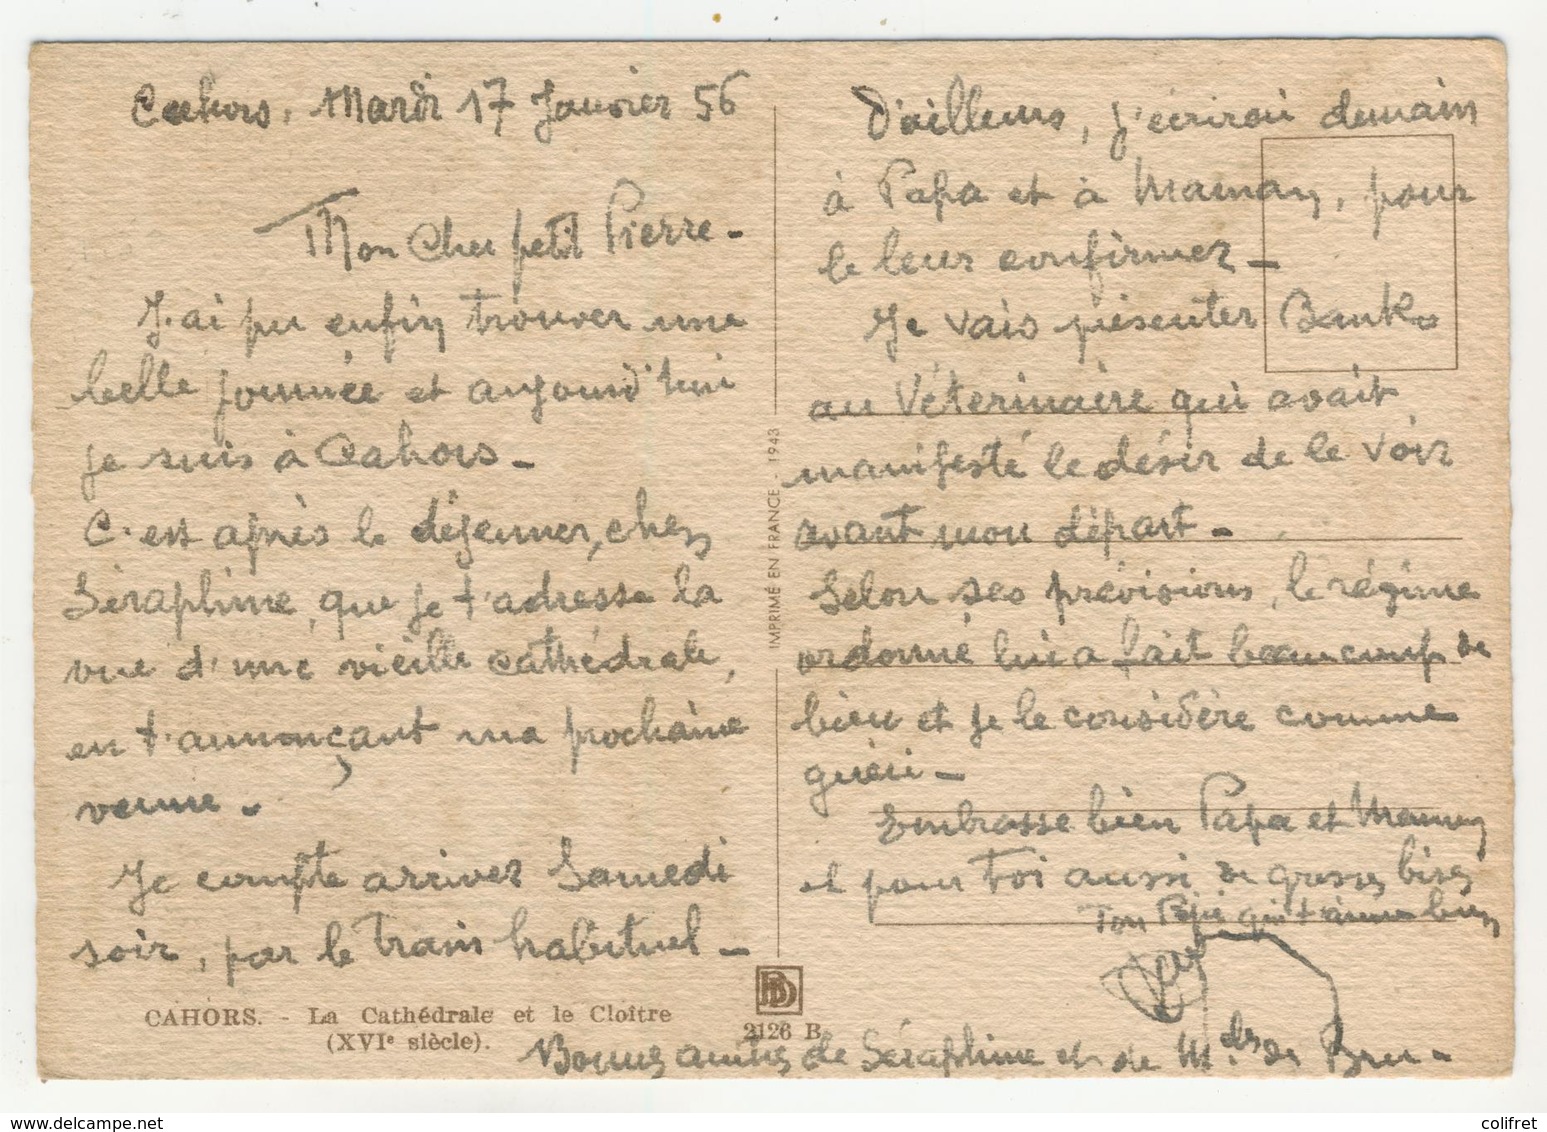 Cahors, Mardi 17 Janvier 56
Mon Cher petit Pierre -
J'ai pu enfin trouver une
belle journée et aujourd'hui
je suis à Cahors -
C'est après le déjeuner, chez
Séraphine, que je t'adresse la
vue d'une vieille cathédrale,
en t'annonçant ma prochaine
venue -
Je compte arriver Samedi
soir, par le train habituel -
CAHORS. - La Cathédrale et le Cloître
(XVIe siècle).
IMPRIMÉ EN FRANCE - 1943
BD
2126 B
D'ailleurs, j'écrirai demain
à Papa et à Maman, pour
le leur confirmer -
Je vais présenter Bank
au Véterinaire qui avait
manifesté le désir de le voir
avant mon départ -
Selon ses prévisions, le régime
ordonné lui a fait beaucoup de
bien et je le considère comme
guéri -
Embrasse bien Papa et Maman
et pour Toi aussi de grosses bises
Ton Papi qui t'aime bien
Bonnes amitiés de Séraphine et de M. de Bru -
colifret